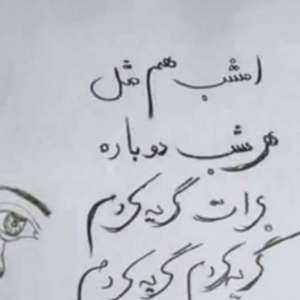 امشب هم مثل
هر شب دوباره
برات گریه کردم
گریه کردم گریه کردم